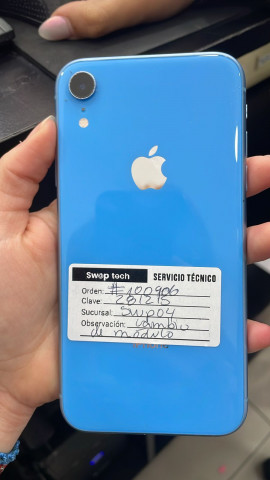 Swap tech SERVICIO TÉCNICO
Orden: #100906
Clave: 281215
Sucursal: SWP04
Observación: Cambio
de módulo